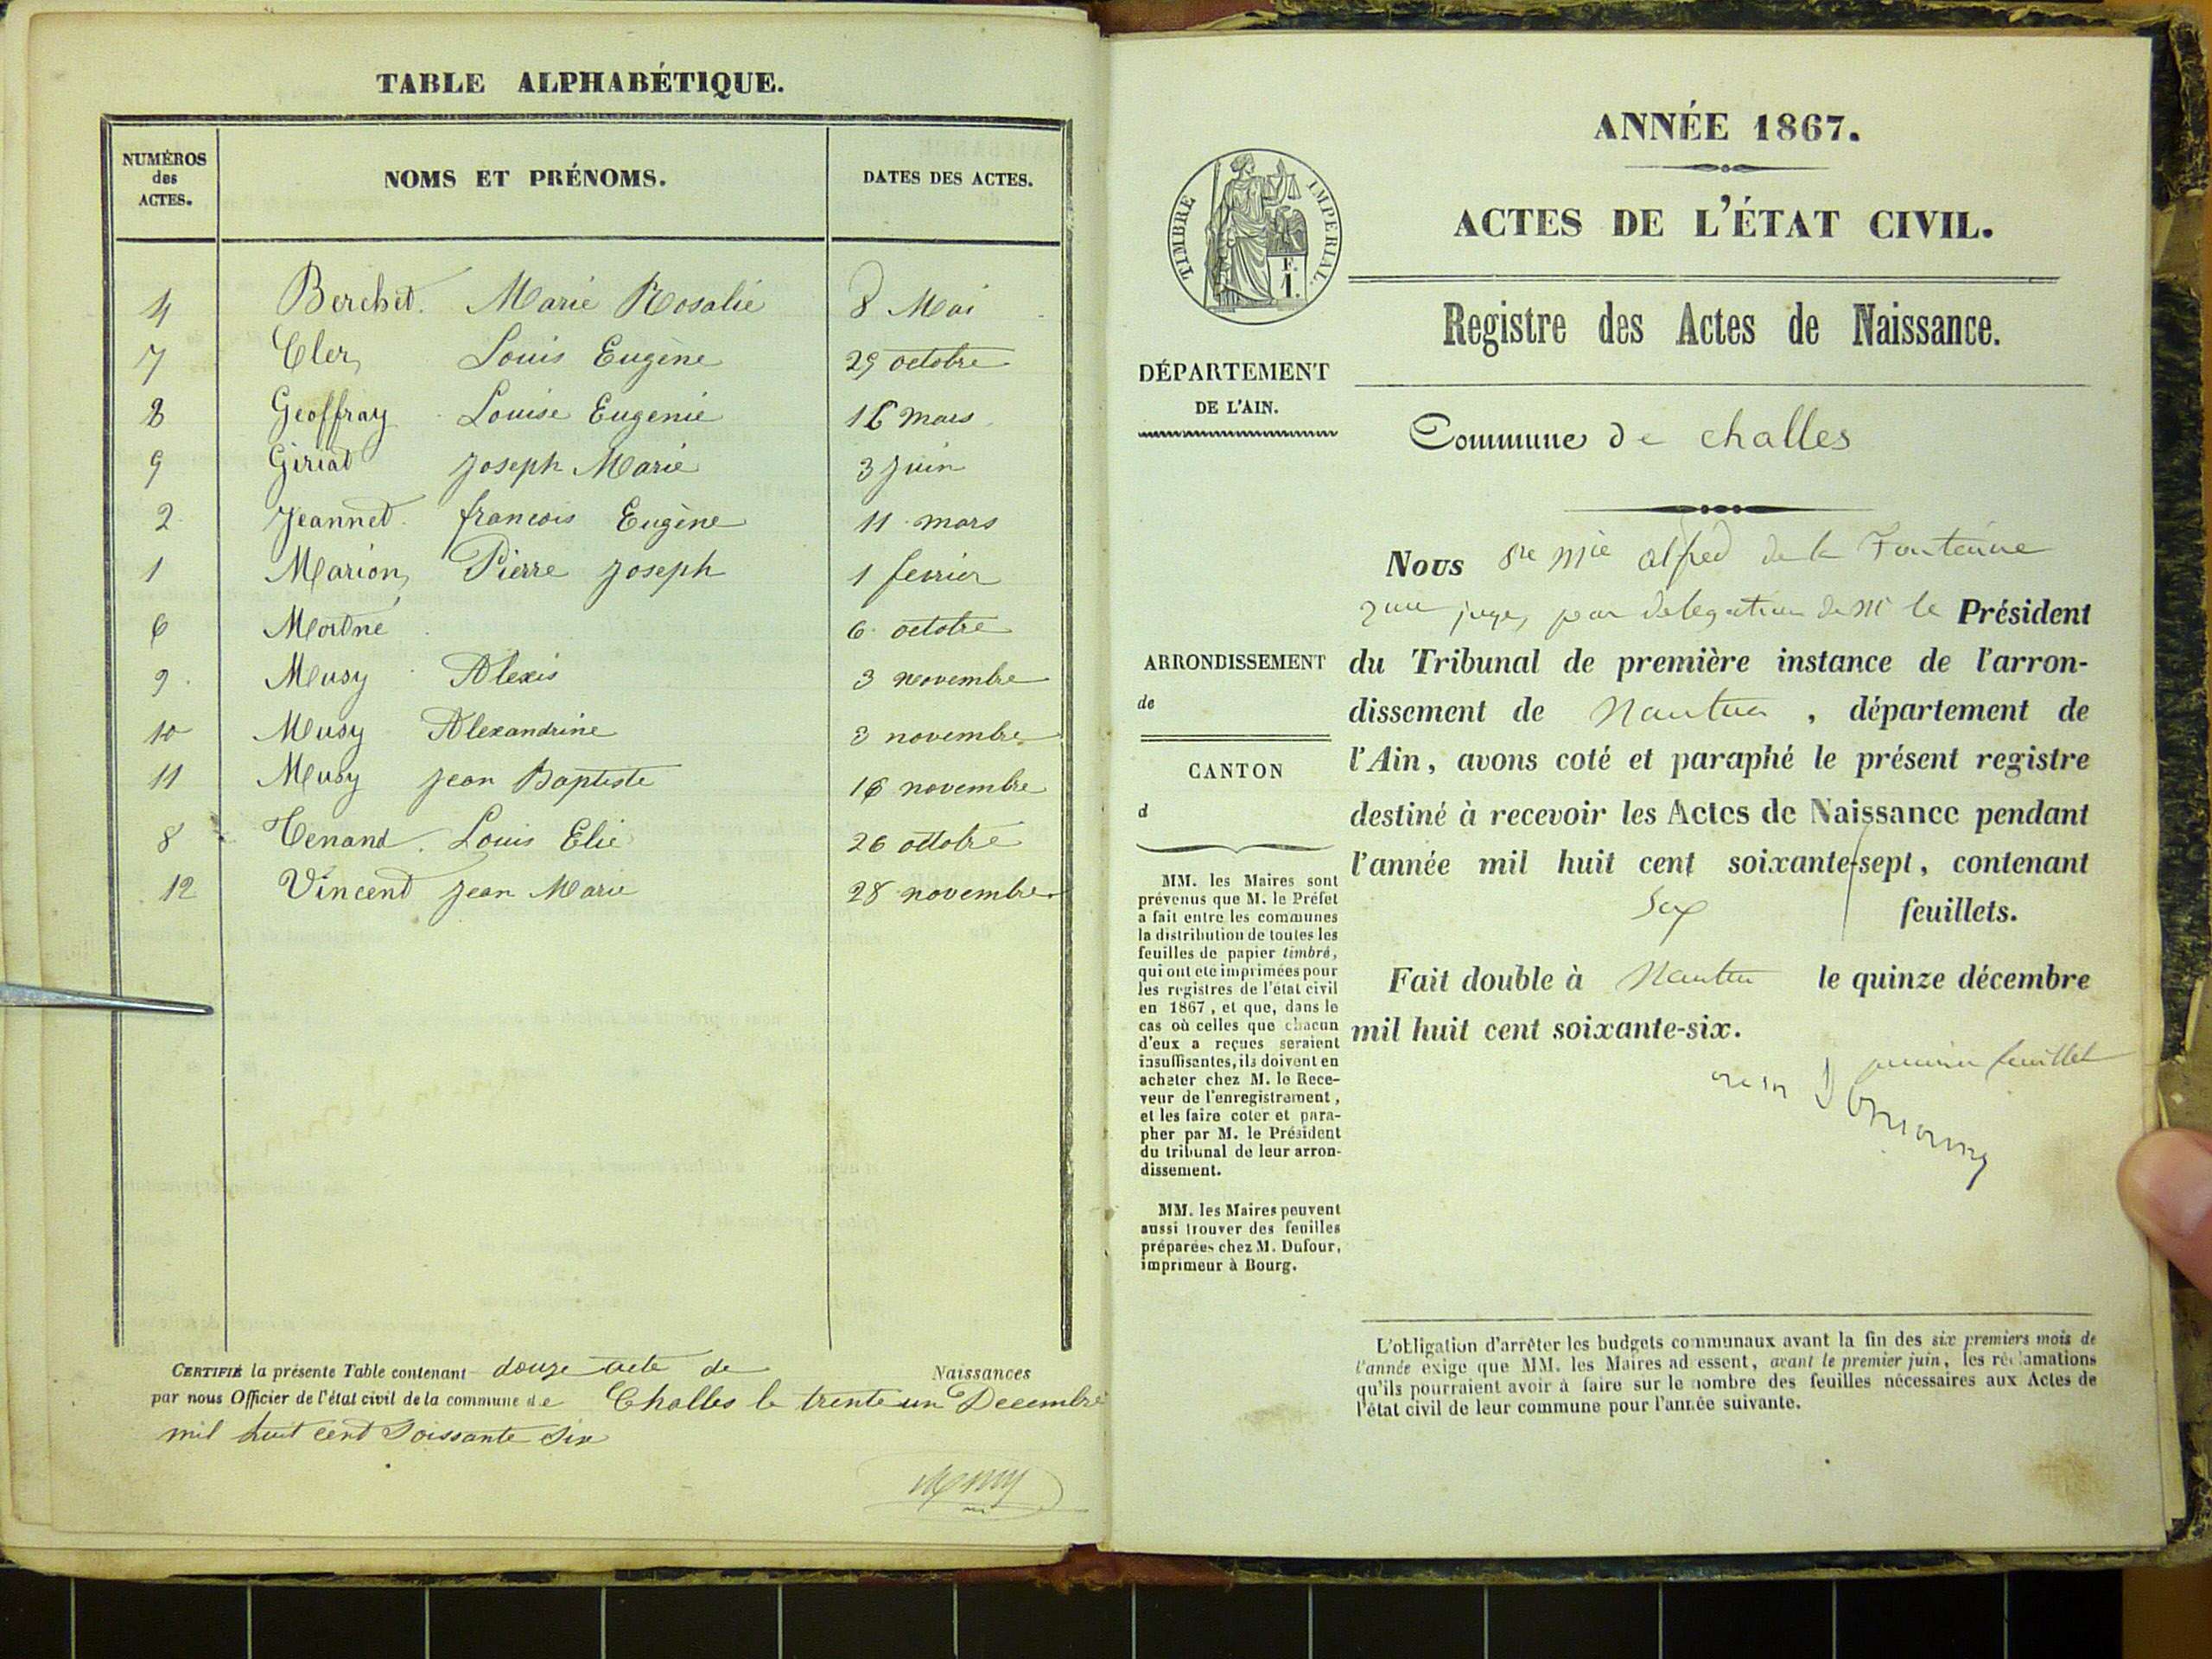 TABLE ALPHABÉTIQUE.
NUMÉROS des ACTES. NOMS ET PRÉNOMS. DATES DES ACTES.
4 Berchet. Marie Rosalie 8 Mai
7 Cler, Louis Eugène 29 octobre
Geoffray Louise Eugenie mars
Giriat Joseph Marie 3 Juin
2 Jeannet. francois Eugène 11 mars
1 Marion, Pierre Joseph 1 fevrier
6 Mortné 6 octobre
9 Musy Alexis 3 novembre
10 Musy Alexandrine 3 novembre
11 Musy Jean Baptiste 16 novembre
8 Tenand. Louis Elie 26 octobre
12 Vincent Jean Marie 28 novembre
CERTIFIÉ la présente Table contenant douze acte de Naissances
par nous Officier de l'état civil de la commune de Challes le trente un Decembre
mil huit cent Soissante Six
ANNÉE 1867.
ACTES DE L'ÉTAT CIVIL.
TIMBRE IMPERIAL.
F.
1.
Registre des Actes de Naissance.
DÉPARTEMENT
DE L'AIN.
Commune de challes
ARRONDISSEMENT
de
CANTON
d
MM. les Maires sont
prévenus que M. le Préfet
a fait entre les communes
la distribution de toutes les
feuilles de papier timbré,
qui ont été imprimées pour
les registres de l'état civil
en 1867, et que, dans le
cas où celles que chacun
d'eux a reçues seraient
insuffisantes, ils doivent en
acheter chez M. le Rece-
veur de l'enregistrement,
et les faire coter et para-
pher par M. le Président
du tribunal de leur arron-
dissement.
MM. les Maires peuvent
aussi trouver des feuilles
préparées chez M. Dufour,
imprimeur à Bourg.
Nous alfred de la Fontaine
juge, par delegation de Mr le Président
du Tribunal de première instance de l'arron-
dissement de Nantua, département de
l'Ain, avons coté et paraphé le présent registre
destiné à recevoir les Actes de Naissance pendant
l'année mil huit cent soixante-sept, contenant
Six feuillets.
Fait double à Nantua le quinze décembre
mil huit cent soixante-six.
premier feuillet
L'obligation d'arrêter les budgets communaux avant la fin des six premiers mois de
l'année exige que MM. les Maires adressent, avant le premier juin, les réclamations
qu'ils pourraient avoir à faire sur le nombre des feuilles nécessaires aux Actes de
l'état civil de leur commune pour l'année suivante.